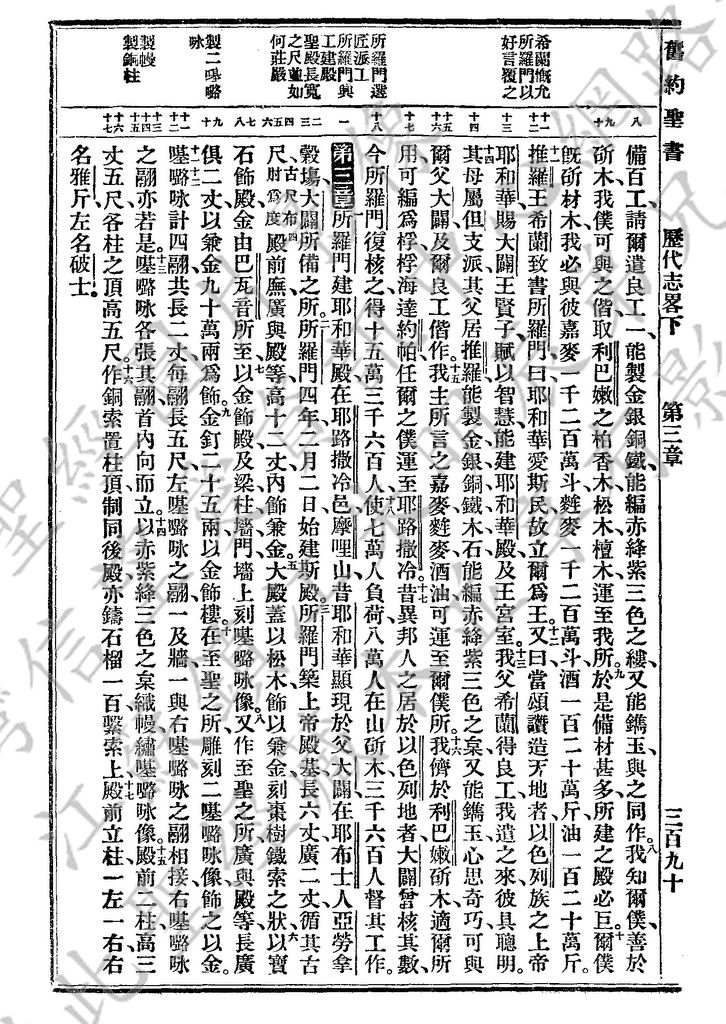 舊約聖書
歷代志畧下
第三章
三百九十
希蘭慨允
所羅門以
好言覆之
所羅門選
匠派工
所羅門興
工建殿
聖殿長寬
之尺並如
何莊嚴
製二𡀔嚧
咏
製幔
製銅柱
八
九
十
十一
十二
十三
十四
十五
十六
十七
十八
一
二
三
四
五
六
七
八
九
十
十一
十二
十三
十四
十五
十六
十七
備百工、請爾遣良工一、能製金銀銅鐵、能編赤絳紫三色之縷、又能鐫玉、與之同作。八我知爾僕善於
斫木、我僕可與之偕、取利巴嫩之柏香木松木檀木、運至我所。九於是備材甚多、所建之殿必巨。十爾僕
旣斫材木、我必與彼嘉麥一千二百萬斗、麰麥一千二百萬斗、酒一百二十萬斤、油一百二十萬斤。
十一推羅王希蘭致書所羅門曰、耶和華愛斯民、故立爾爲王。十二又曰、當頌讚造天地者、以色列族之上帝
耶和華、賜大闢王賢子、賦以智慧、能建耶和華殿、及王宮室。十三我父希蘭得良工、我遣之來、彼具聰明。
十四其母屬但支派、其父居推羅、能製金銀銅鐵木石、能編赤絳紫三色之枲、又能鐫玉、心思奇巧、可與
爾父大闢及爾良工偕作。十五我主所言之嘉麥麰麥酒油、可運至爾僕所。十六我儕於利巴嫩斫木、適爾所
用、可編爲桴、桴海達約帕、任爾之僕運至耶路撒冷。十七昔異邦人之居於以色列地者、大闢曾核其數、
今所羅門復核之、得十五萬三千六百人。十八使七萬人負荷、八萬人在山斫木、三千六百人督其工作。
第三章 所羅門建耶和華殿、在耶路撒冷邑摩哩山、昔耶和華顯現於父大闢、在耶布士人亞勞拿
穀塲、大闢所備之所。二所羅門四年二月二日、始建斯殿。三所羅門築上帝殿、基長六丈、廣二丈、循其古
尺、古尺布肘爲度四殿前廡廣與殿等、高十二丈、內飾兼金。五大殿蓋以松木、飾以兼金、刻棗樹鐵索之狀。六以寶
石飾殿、金由巴瓦音所至。七以金飾殿、及梁柱墻門、墻上刻𡀔嚧咏像。八又作至聖之所、廣與殿等、長廣
俱二丈、以兼金九十萬兩爲飾。九金釘二十五兩、以金飾樓。十在至聖之所、雕刻二𡀔嚧咏像、飾之以金。
十一十二𡀔嚧咏計四翮、共長二丈、每翮長五尺、左𡀔嚧咏之翮、一及牆、一與右𡀔嚧咏之翮相接、右𡀔嚧咏
之翮亦若是。十三𡀔嚧咏各張其翮、首內向而立。十四以赤紫絳三色之枲織幔、繡𡀔嚧咏像。十五殿前二柱、高三
丈五尺、各柱之頂高五尺。十六作銅索、置柱頂、制同後殿、亦鑄石榴一百、繫索上。十七殿前立柱、一左一右、右
名雅斤、左名破士。